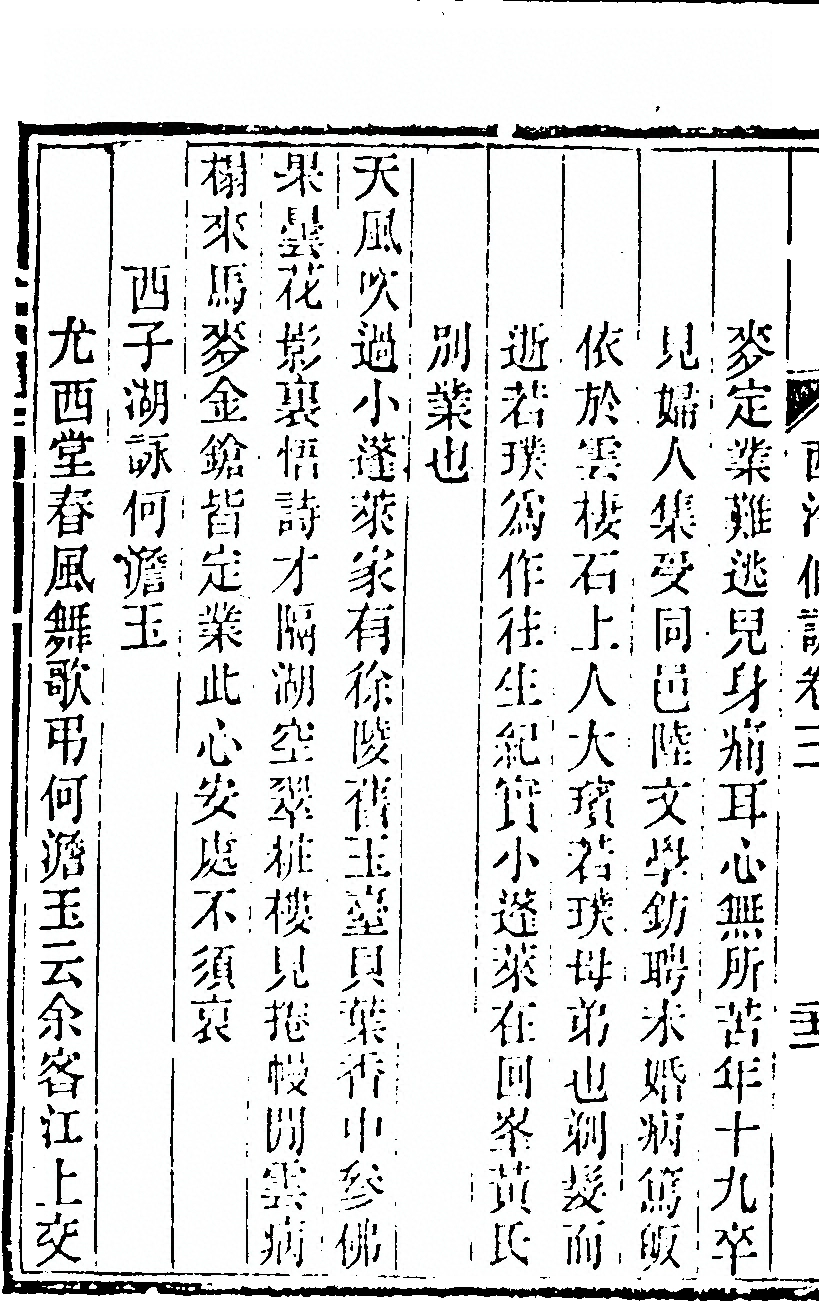 麥定業難逃兒身痛耳心無所苦年十九卒
見婦人集受同邑陸文學鈁聘未婚病篤皈
依於雲棲石上人大璸若璞母弟也剃髮而
逝若璞爲作往生紀實小蓬萊在回峯黃氏
別業也
天風吹過小蓬萊家有徐陵舊玉臺貝葉香中參佛
果曇花影裏悟詩才隔湖空翠粧樓見捲幔閒雲病
榻來馬麥金鎗皆定業此心安處不須哀
西子湖詠何澹玉
尤西堂春風舞歌弔何澹玉云余客江上交